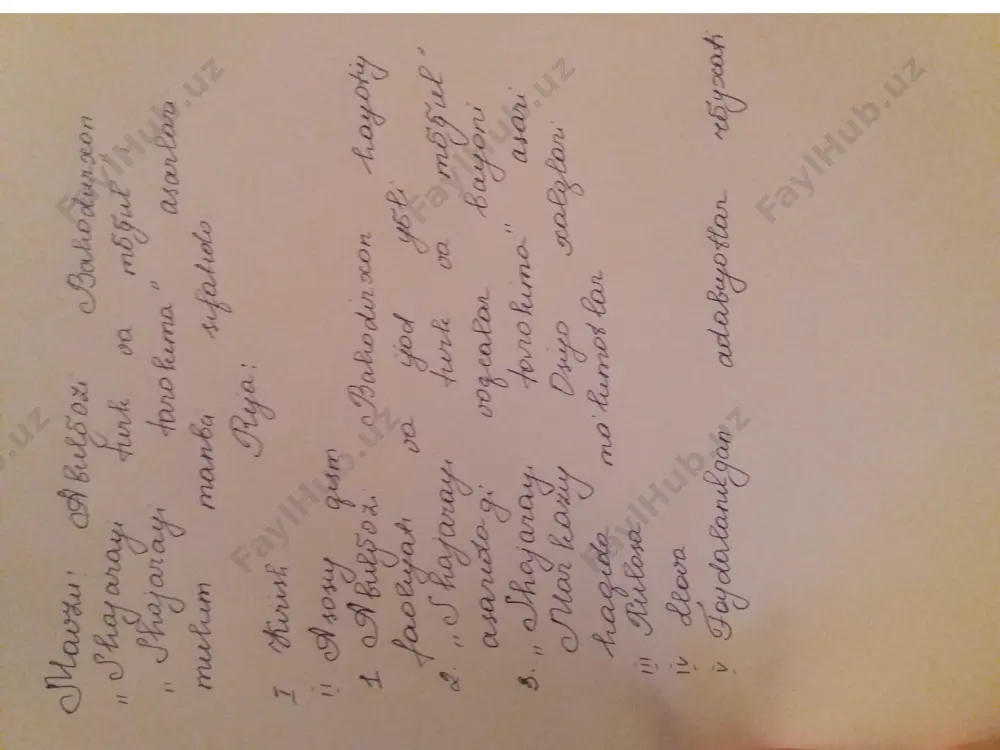 Mavzu: Abulgʻozi Bahodirxon
„Shajarayi turk va moʻgʻul",
„Shajarayi tarokima" asarlari
muhim manba sifatida
Reja:
I Kirish
II Asosiy qism
1 Abulgʻozi Bahodirxon hayotiy
faoliyati va ijod yoʻli
2. „Shajarayi turk va moʻgʻul"
asaridagi voqealar bayoni
3. „Shajarayi tarokima" asari
Markaziy Osiyo xalqlari
haqida ma'lumotlar
III Xulosa
IV Ilova
V Foydalanilgan adabiyotlar roʻyxati
FaylHub.uz
FaylHub.uz
FaylHub.uz
FaylHub.uz
FaylHub.uz
.uz